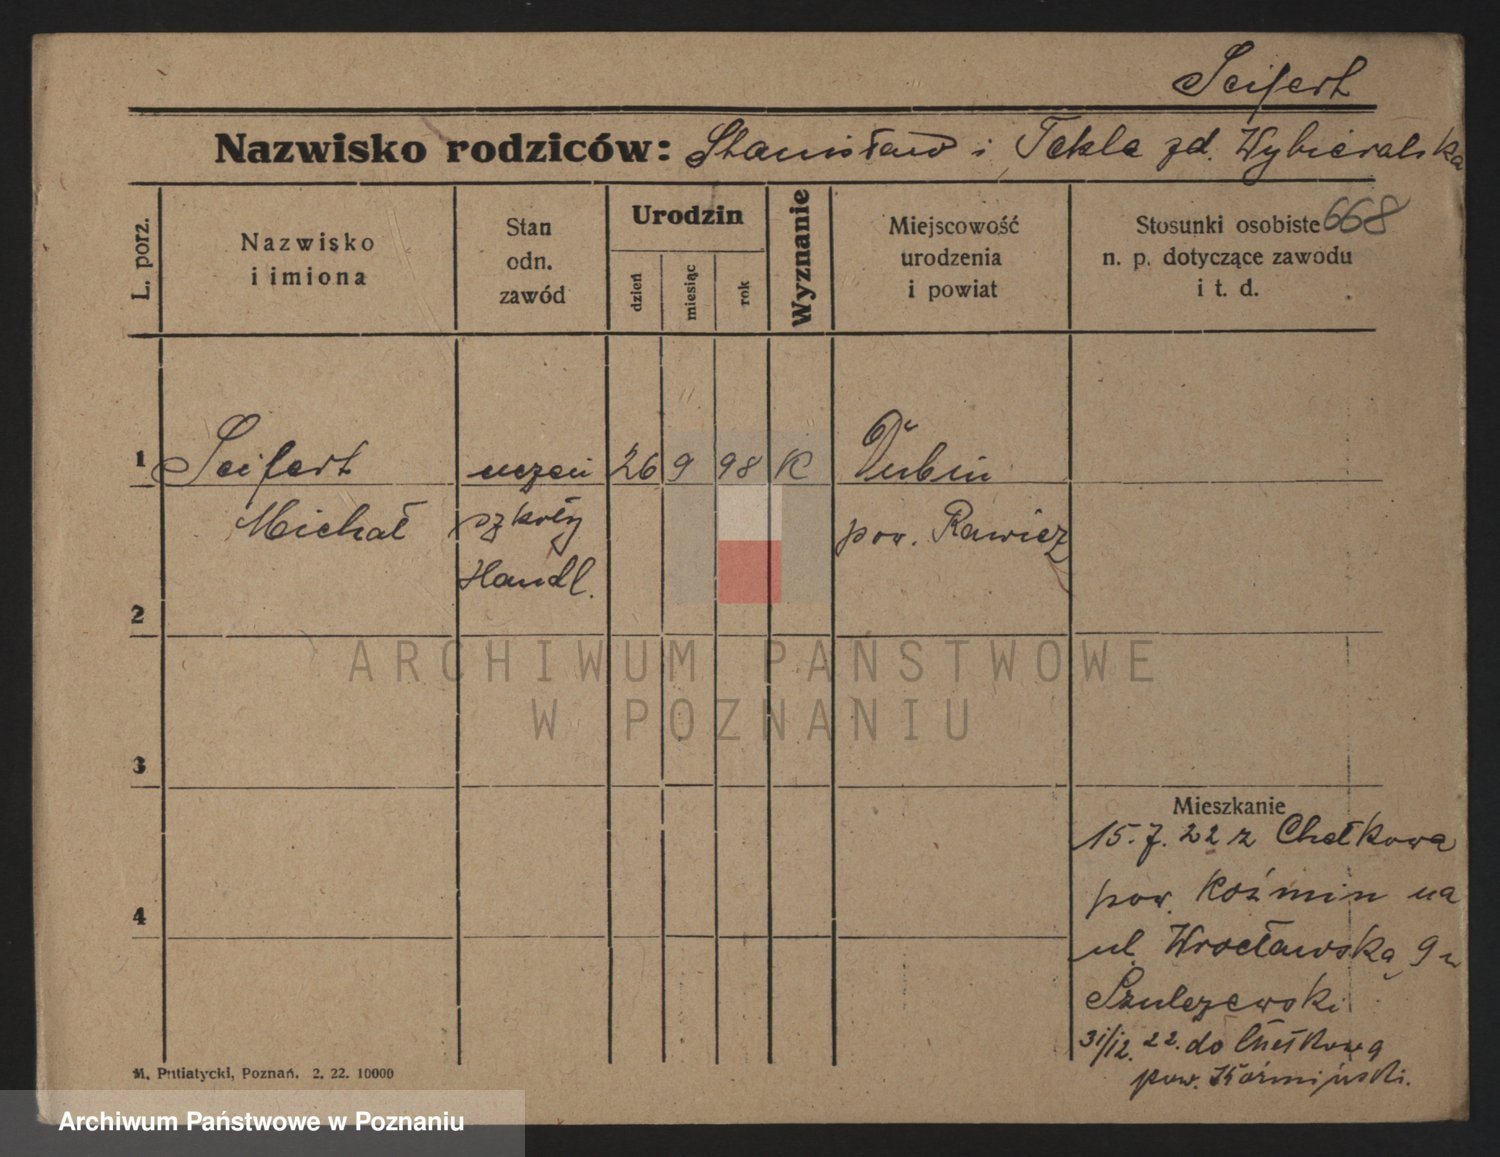 Seifert
Nazwisko rodziców: Stanisław i Tekla zd. Wybieralska
L. porz.
Nazwisko
i imiona
Stan
odn.
zawód
Urodzin
dzień
miesiąc
rok
Wyznanie
Miejscowość
urodzenia
i powiat
668
Stosunki osobiste
n. p. dotyczące zawodu
i t. d.
1 Seifert uczeń 26 9 98 K Dubin
Michał szkoły pow. Rawicz
Handl.
2
3
4
Mieszkanie
15.7.22 z Chełkowa
pow. Koźmin na
ul. Wrocławską 9 u
Szulczewski
31/12. 22. do Chełkowa
pow. Koźmiński.
M. Putiatycki, Poznań. 2. 22. 10000
ARCHIWUM PAŃSTWOWE
W POZNANIU
Archiwum Państwowe w Poznaniu